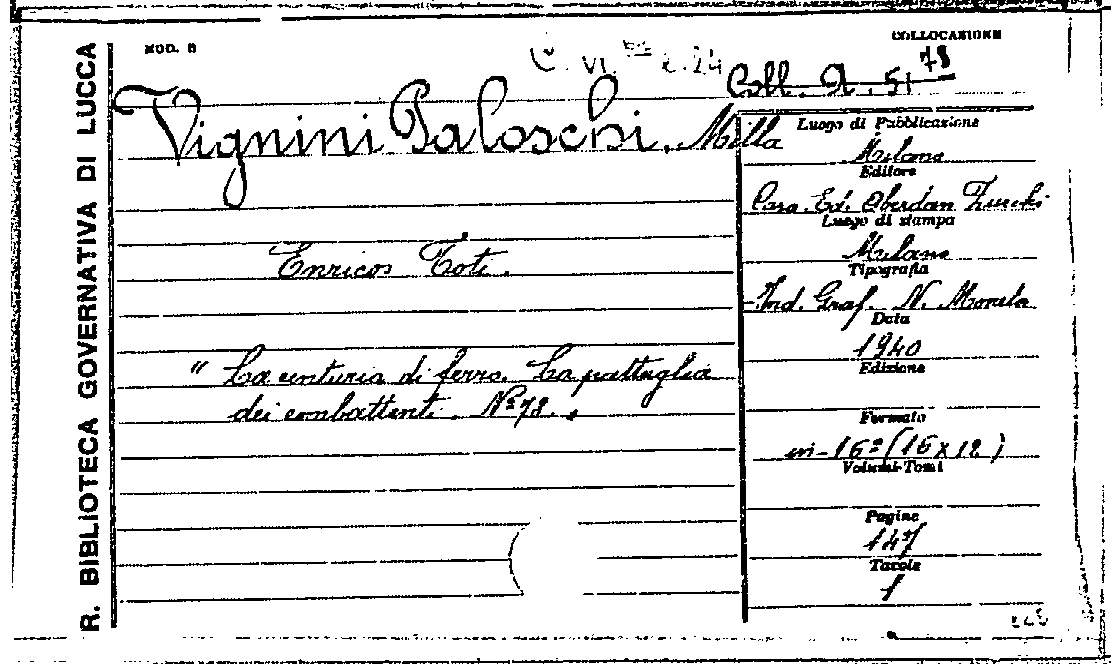 R. BIBLIOTECA GOVERNATIVA DI LUCCA
MOD. B
COLLOCAZIONE
Coll. 51 78
Vignini Paloschi. Milla
Luogo di Pubblicazione
Milano
Editore
Casa. Ed. Oberdan Zucchi
Luogo di stampa
Enricos Toti.
Milano
Tipografia
Ind. Graf. N. Moneta
Data
1940
Edizione
" La centuria di ferro. La pattuglia
dei combattenti. Nº 78.
Formato
in-16º (16x12)
Volumi-Tomi
Pagine
147
Tavole
1